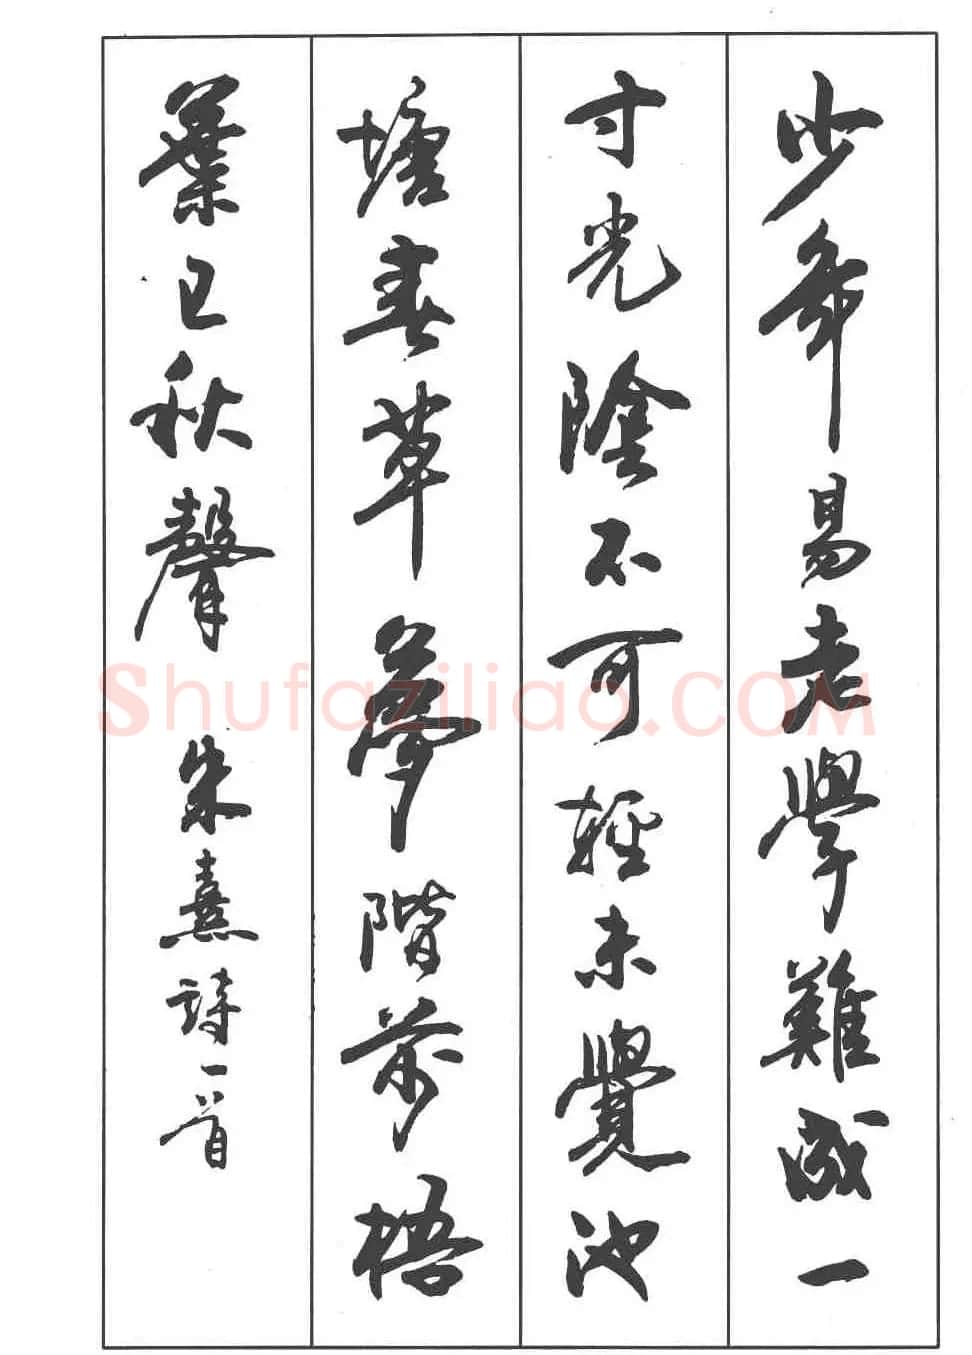 少年易老學難成一
寸光陰不可輕未覺池
塘春草夢階前梧
葉已秋聲 朱熹詩一首
Shufaziliao.COM